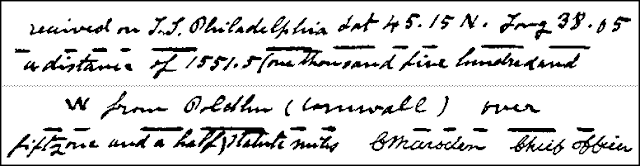 received on S.S. Philadelphia Lat 45.15 N. Long 38.05
a distance of 1551.5 (one thousand five hundred and
W from Poldhu (Cornwall) over
fifty one and a half) statute miles C Marsden Chief Officer